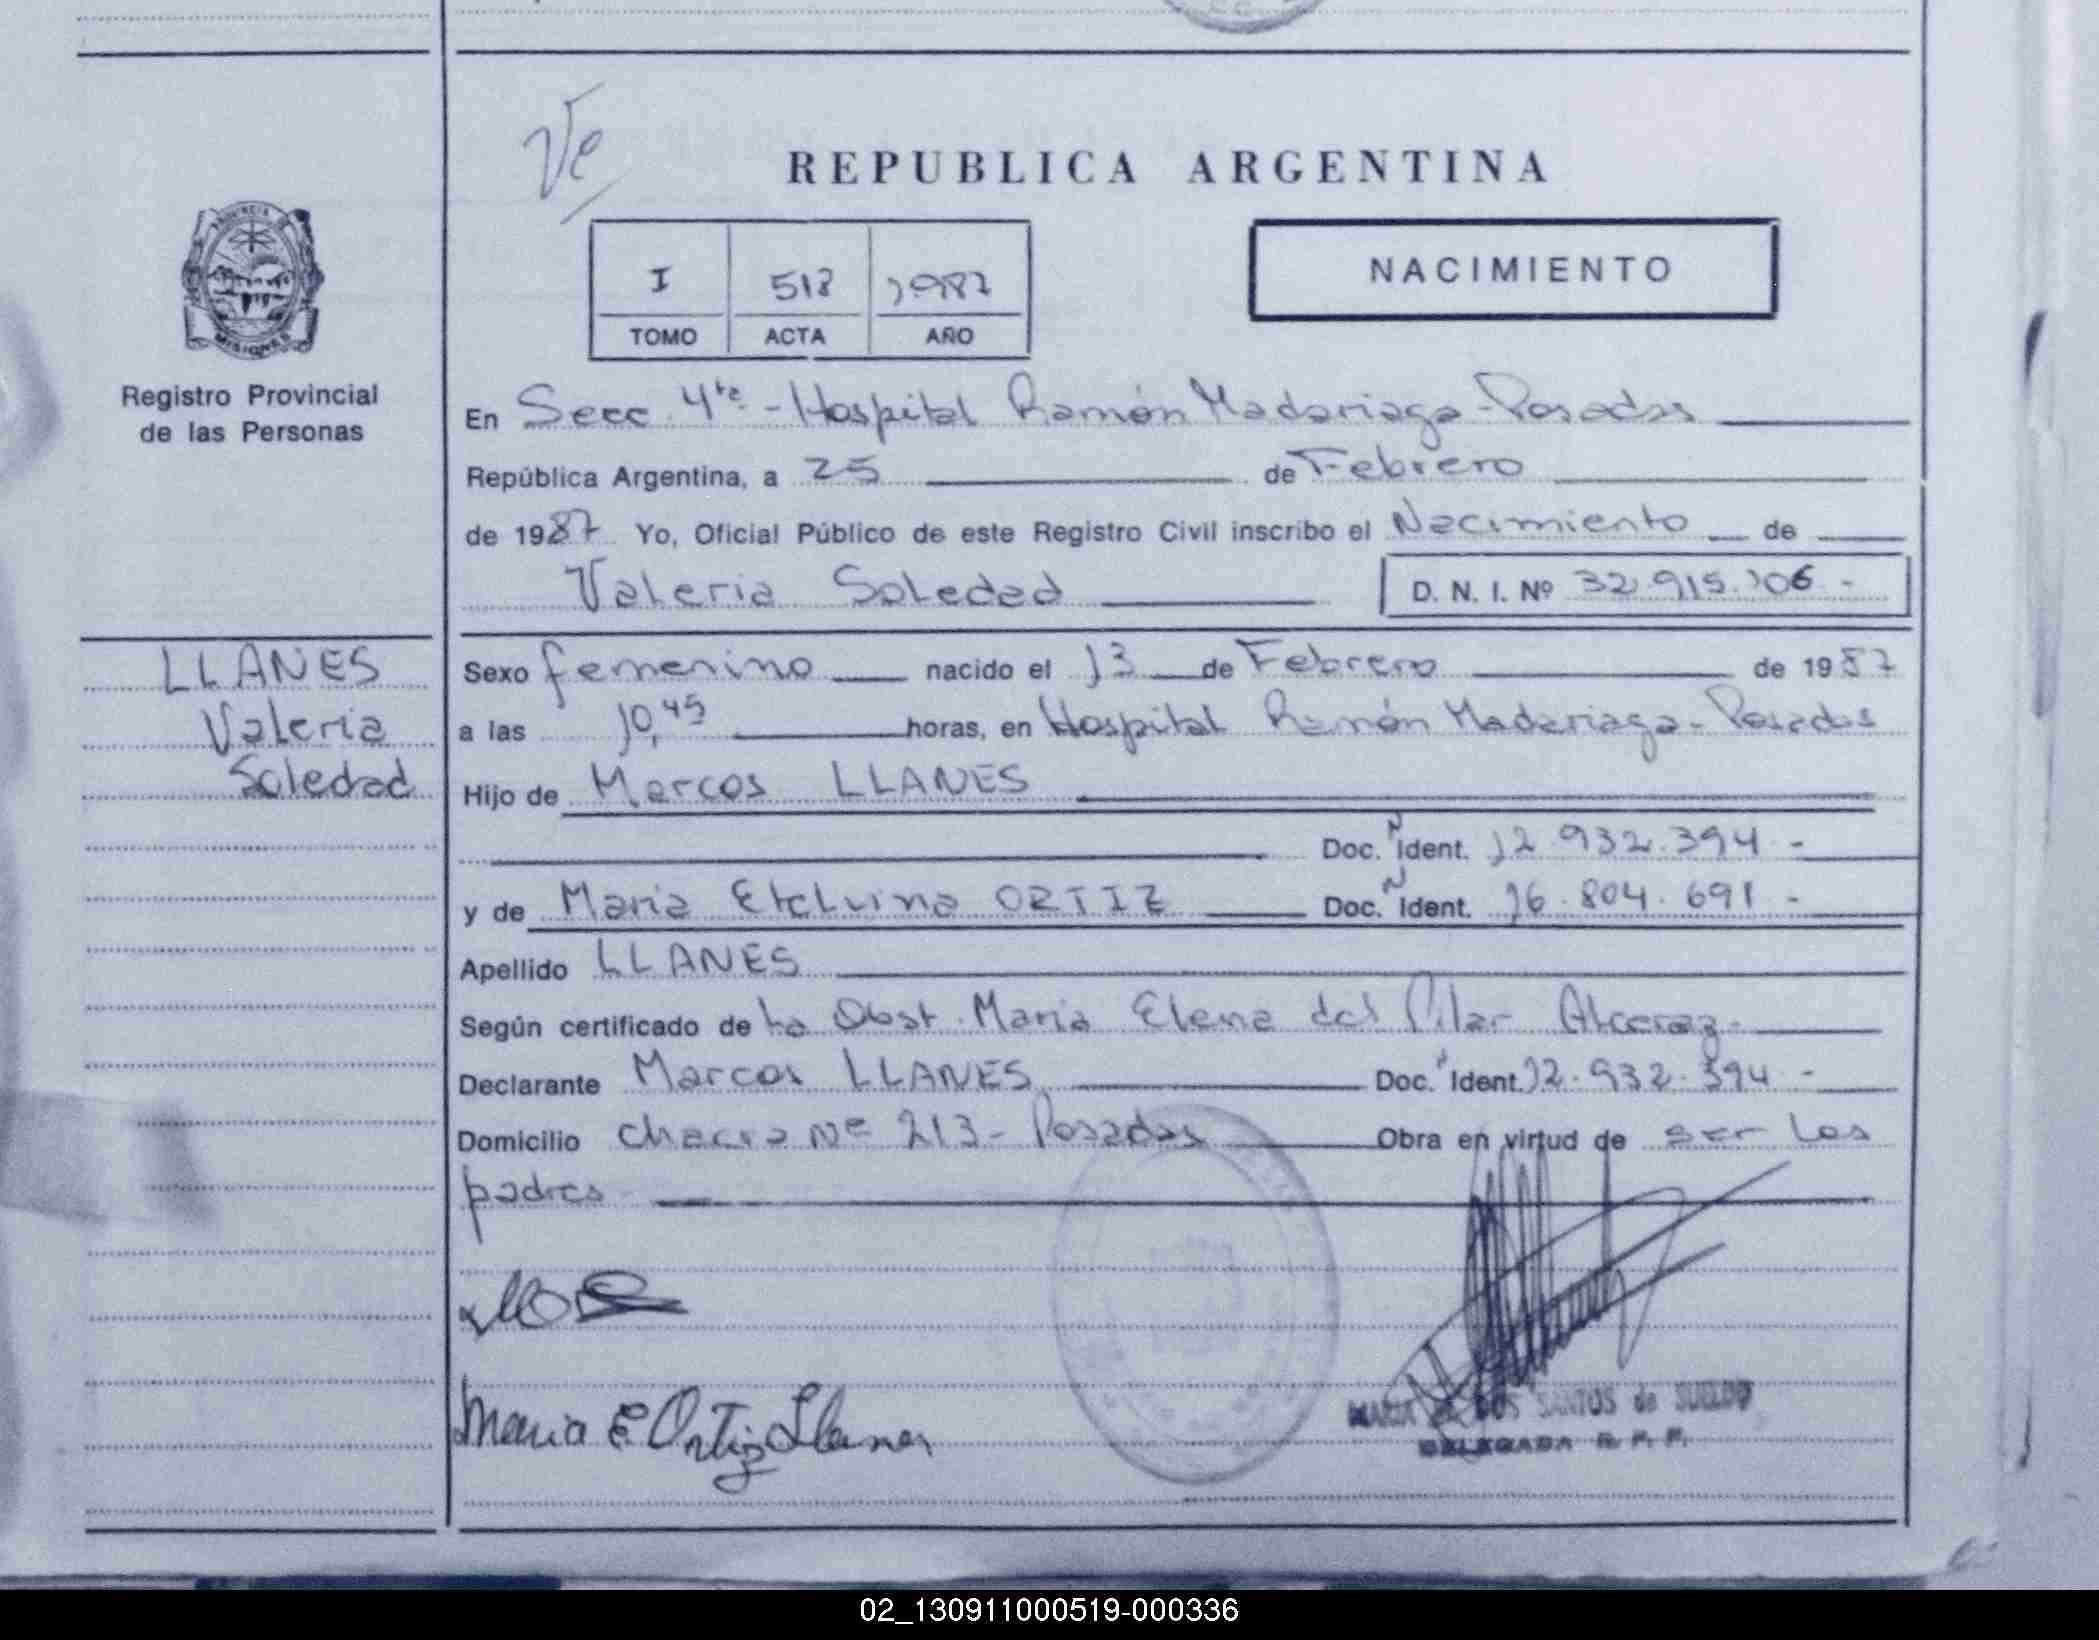 Ve
REPUBLICA ARGENTINA
PROVINCIA DE
MISIONES
I 513 1987
TOMO ACTA AÑO
NACIMIENTO
Registro Provincial
de las Personas
En Secc 4ta - Hospital Ramón Madariaga - Posadas
República Argentina, a 25 de Febrero
de 1987 Yo, Oficial Público de este Registro Civil inscribo el Nacimiento de
Valeria Soledad D. N. I. Nº 32.915.106 -
LLANES
Valeria
Soledad
Sexo femenino nacido el 13 de Febrero de 1987
a las 10,45 horas, en Hospital Ramón Madariaga - Posadas
Hijo de Marcos LLANES
Doc. N Ident. 12.932.394 -
y de Maria Etelvina ORTIZ Doc. N Ident. 16.804.691 -
Apellido LLANES
Según certificado de la Obst. Maria Elena del Pilar Alcaraz-
Declarante Marcos LLANES Doc. Ident. 12.932.394 -
Domicilio chacra Nº 213 - Posadas Obra en virtud de ser los
padres
Maria E Ortiz Llanes
MARIA DOS SANTOS de SUELDO
DELEGADA R. P. P.
02_130911000519-000336